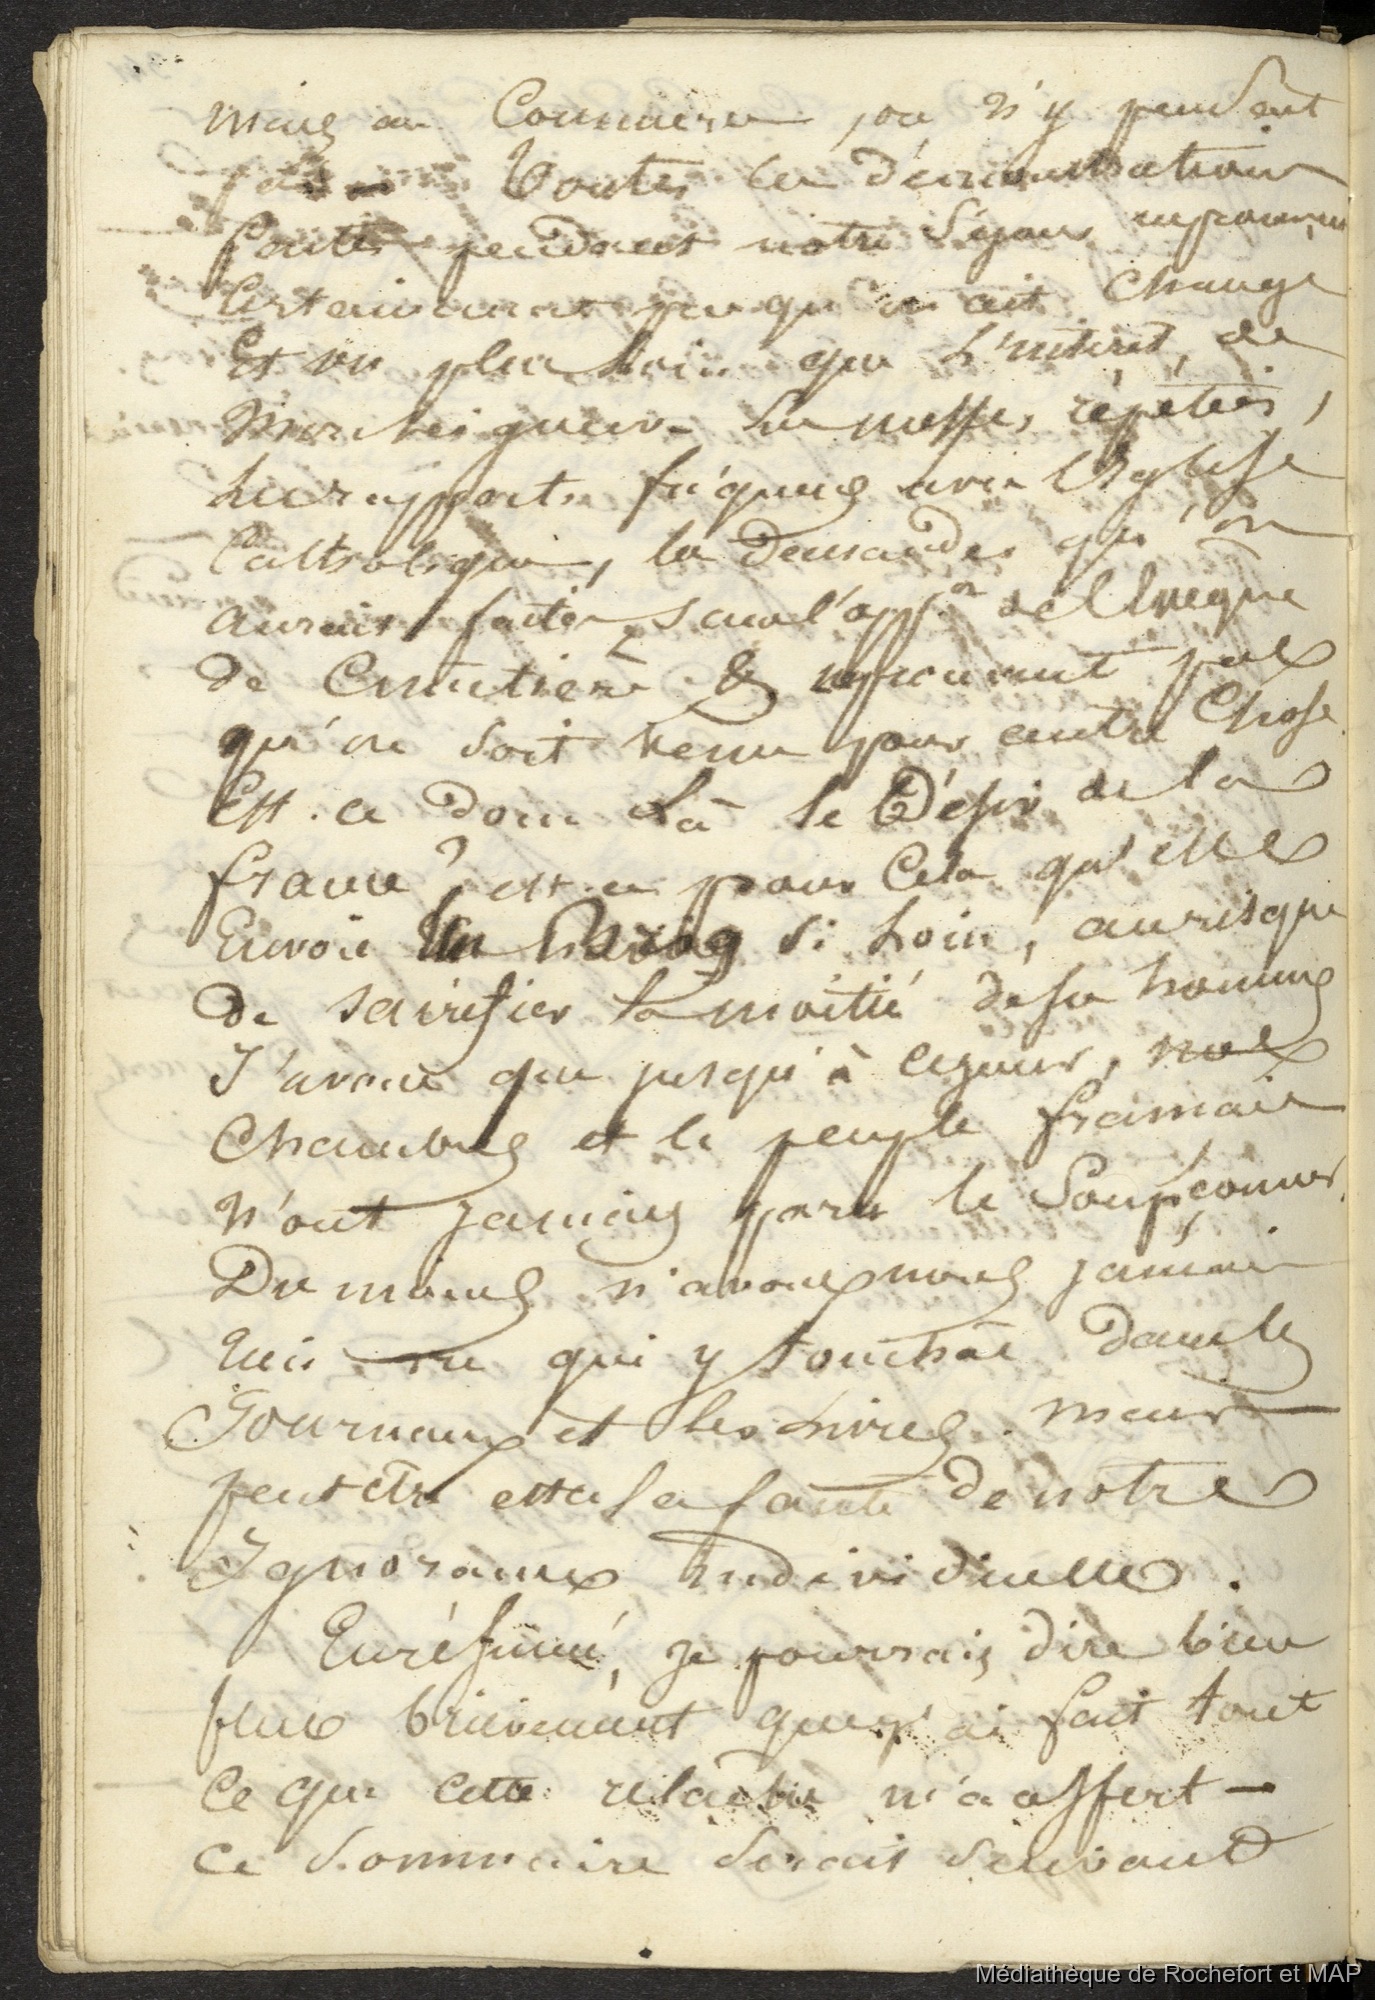 mais au Commerce, on n'y pensent
pas — Toutes les démonstrations
faites pendant notre Séjour
Certainement pas qu'on ait Changé
Et vu plus loin que L'intérêt de
Monseigneur les messes répétées,
Les rapports fréquens avec l'Eglise
Catholique, les demandes qu'on
aurait faites sous l'app.on de l'Eveque
de Cimetière & ne prouvent pas
qu'on soit venu pour autre Chose
Est-ce donc Là le Désir de la
france? est-ce pour Cela qu'elle
Envoie Un si Loin, au risque
de sacrifier la moitié de ses hommes
J'avoue que jusqu'à ce jour, nos
Chambres et le peuple français
n'ont jamais paru le Soupçonner.
Du moins n'avons nous jamais
rien vu qui y touchat dans les
Journaux et les Livres. mais —
peut etre est-ce la faute de notre
Ignorance individuelle.
En résumé, je pourrais dire bien
plus brievement que j'ai fait tout
ce que cette relache m'a offert —
ce sommaire serait suivant
Médiathèque de Rochefort et MAP